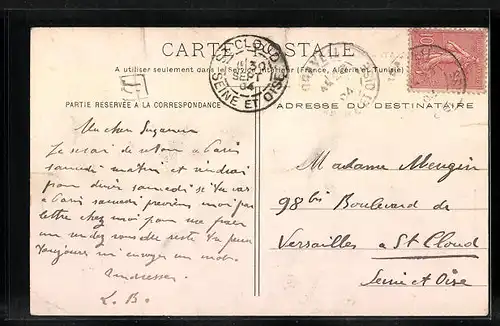 CARTE POSTALE
A utiliser seulement dans le Service Intérieur (France, Algérie et Tunisie)
ST CLOUD
30
SEPT
04
SEINE ET OISE
PARTIE RÉSERVÉE A LA CORRESPONDANCE
ADRESSE DU DESTINATAIRE
Mon cher
Je serai de retour à Paris
samedi matin et viendrai
pour dîner samedi si tu vas
à Paris samedi préviens moi par
lettre chez moi pour me fixer
un rendez vous elle reste tu peux
toujours m'envoyer un mot.
L. B.
Madame Mengin
98 bis Boulevard de
Versailles à St Cloud
Seine et Oise
10